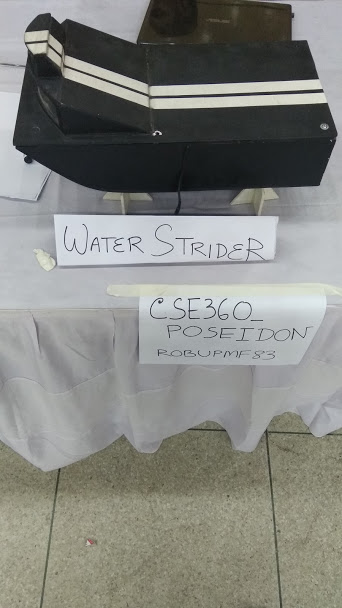 WATER STRIDER
CSE360_
POSEIDON
ROBUPMF83